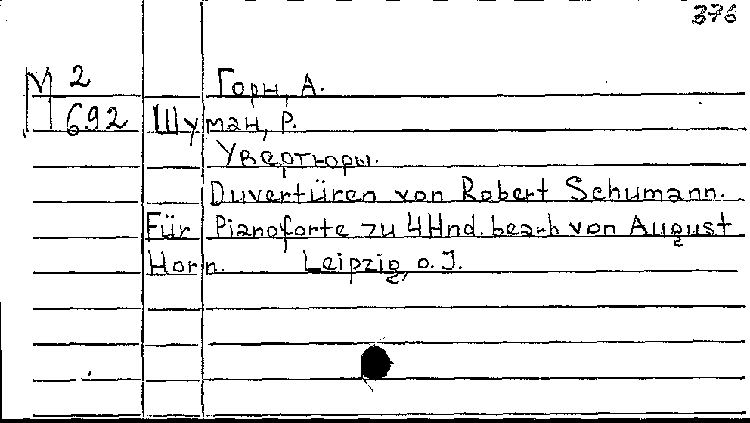 376
М 2
692
Горн, А.
Шуман, Р.
Увертюры.
Duvertüren von Robert Schumann.
Für Pianoforte zu 4 Hnd. bearb von August
Horn. Leipzig, o. J.